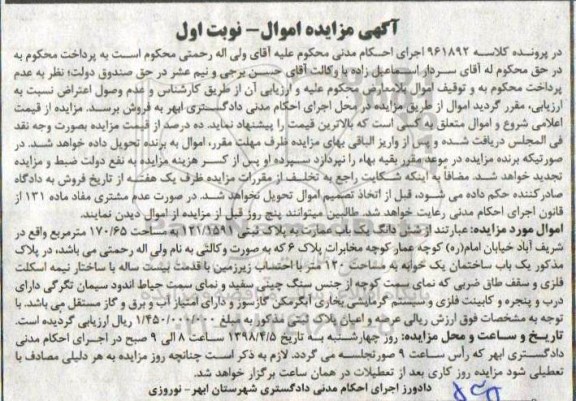 آگهی مزایده اموال – نوبت اول
در پرونده کلاسه ۹۶۱۸۹۲ اجرای احکام مدنی محکوم علیه آقای ولی اله رحمتی محکوم است به پرداخت محکوم به
در حق محکوم له آقای سردار اسماعیل زاده با وکالت آقای حسن برجی و نیم عشر در حق صندوق دولت؛ نظر به عدم
پرداخت محکوم به و توقیف اموال بلامعارض محکوم علیه و ارزیابی آن از طریق کارشناس و عدم وصول اعتراض نسبت به
ارزیابی، مقرر گردید اموال از طریق مزایده در محل اجرای احکام مدنی دادگستری ابهر به فروش برسد. مزایده از قیمت
اعلامی شروع و اموال متعلق به کسی است که بالاترین قیمت را پیشنهاد نماید. ده درصد از قیمت مزایده بصورت وجه نقد
فی المجلس دریافت شده و پس از واریز الباقی بهای مزایده ظرف مهلت مقرر، اموال به برنده تحویل داده خواهد شد. در
صورتیکه برنده مزایده در موعد مقرر بقیه بهاء را نپردازد سپرده او پس از کسر هزینه مزایده به نفع دولت ضبط و مزایده
تجدید خواهد شد. مضافا به اینکه شکایت راجع به تخلف از مقررات مزایده ظرف یک هفته از تاریخ فروش به دادگاه
صادرکننده حکم داده می شود، قبل از اتخاذ تصمیم اموال تحویل نخواهد شد. در صورت عدم مشتری مفاد ماده ۱۳۱ از
قانون اجرای احکام مدنی رعایت خواهد شد. طالبین میتوانند پنج روز قبل از مزایده از اموال دیدن نمایند.
اموال مورد مزایده: عبارتند از شش دانگ یک باب عمارت به پلاک ثبتی ۱۲۱/۱۵۹۱ به مساحت ۱۷۰/۶۵ مترمربع واقع در
شریف آباد خیابان امام(ره) کوچه عمار کوچه مخابرات پلاک ۶ که به صورت وکالتی به نام ولی اله رحمتی می باشد، در پلاک
مذکور یک باب ساختمان یک خوابه به مساحت ۱۲۰ متر با احتساب زیرزمین با قدمت بیست ساله با ساختار نیمه اسکلت
فلزی و سقف طاق ضربی که نمای سمت کوچه از جنس سنگ چینی سفید و نمای سمت حیاط اندود سیمان تگرگی دارای
درب و پنجره و کابینت فلزی و سیستم گرمایشی بخاری آبگرمکن گازسوز و دارای امتیاز آب و برق و گاز مستقل می باشد. با
توجه به مشخصات فوق ارزش ریالی عرصه و اعیان پلاک ثبتی مذکور به مبلغ ۱/۴۵۰/۰۰۰/۰۰۰ ریال ارزیابی گردیده است.
تاریخ و ساعت و محل مزایده: روز چهارشنبه به تاریخ ۱۳۹۸/۴/۵ ساعت ۸ الی ۹ صبح در اجرای احکام مدنی
دادگستری ابهر که رأس ساعت ۹ صورتجلسه می گردد. لازم به ذکر است چنانچه روز مزایده به هر دلیلی مصادف با
تعطیلی شود مزایده روز کاری بعد از تعطیلات در همان ساعت برگزار خواهد شد.
دادورز اجرای احکام مدنی دادگستری شهرستان ابهر- نوروزی